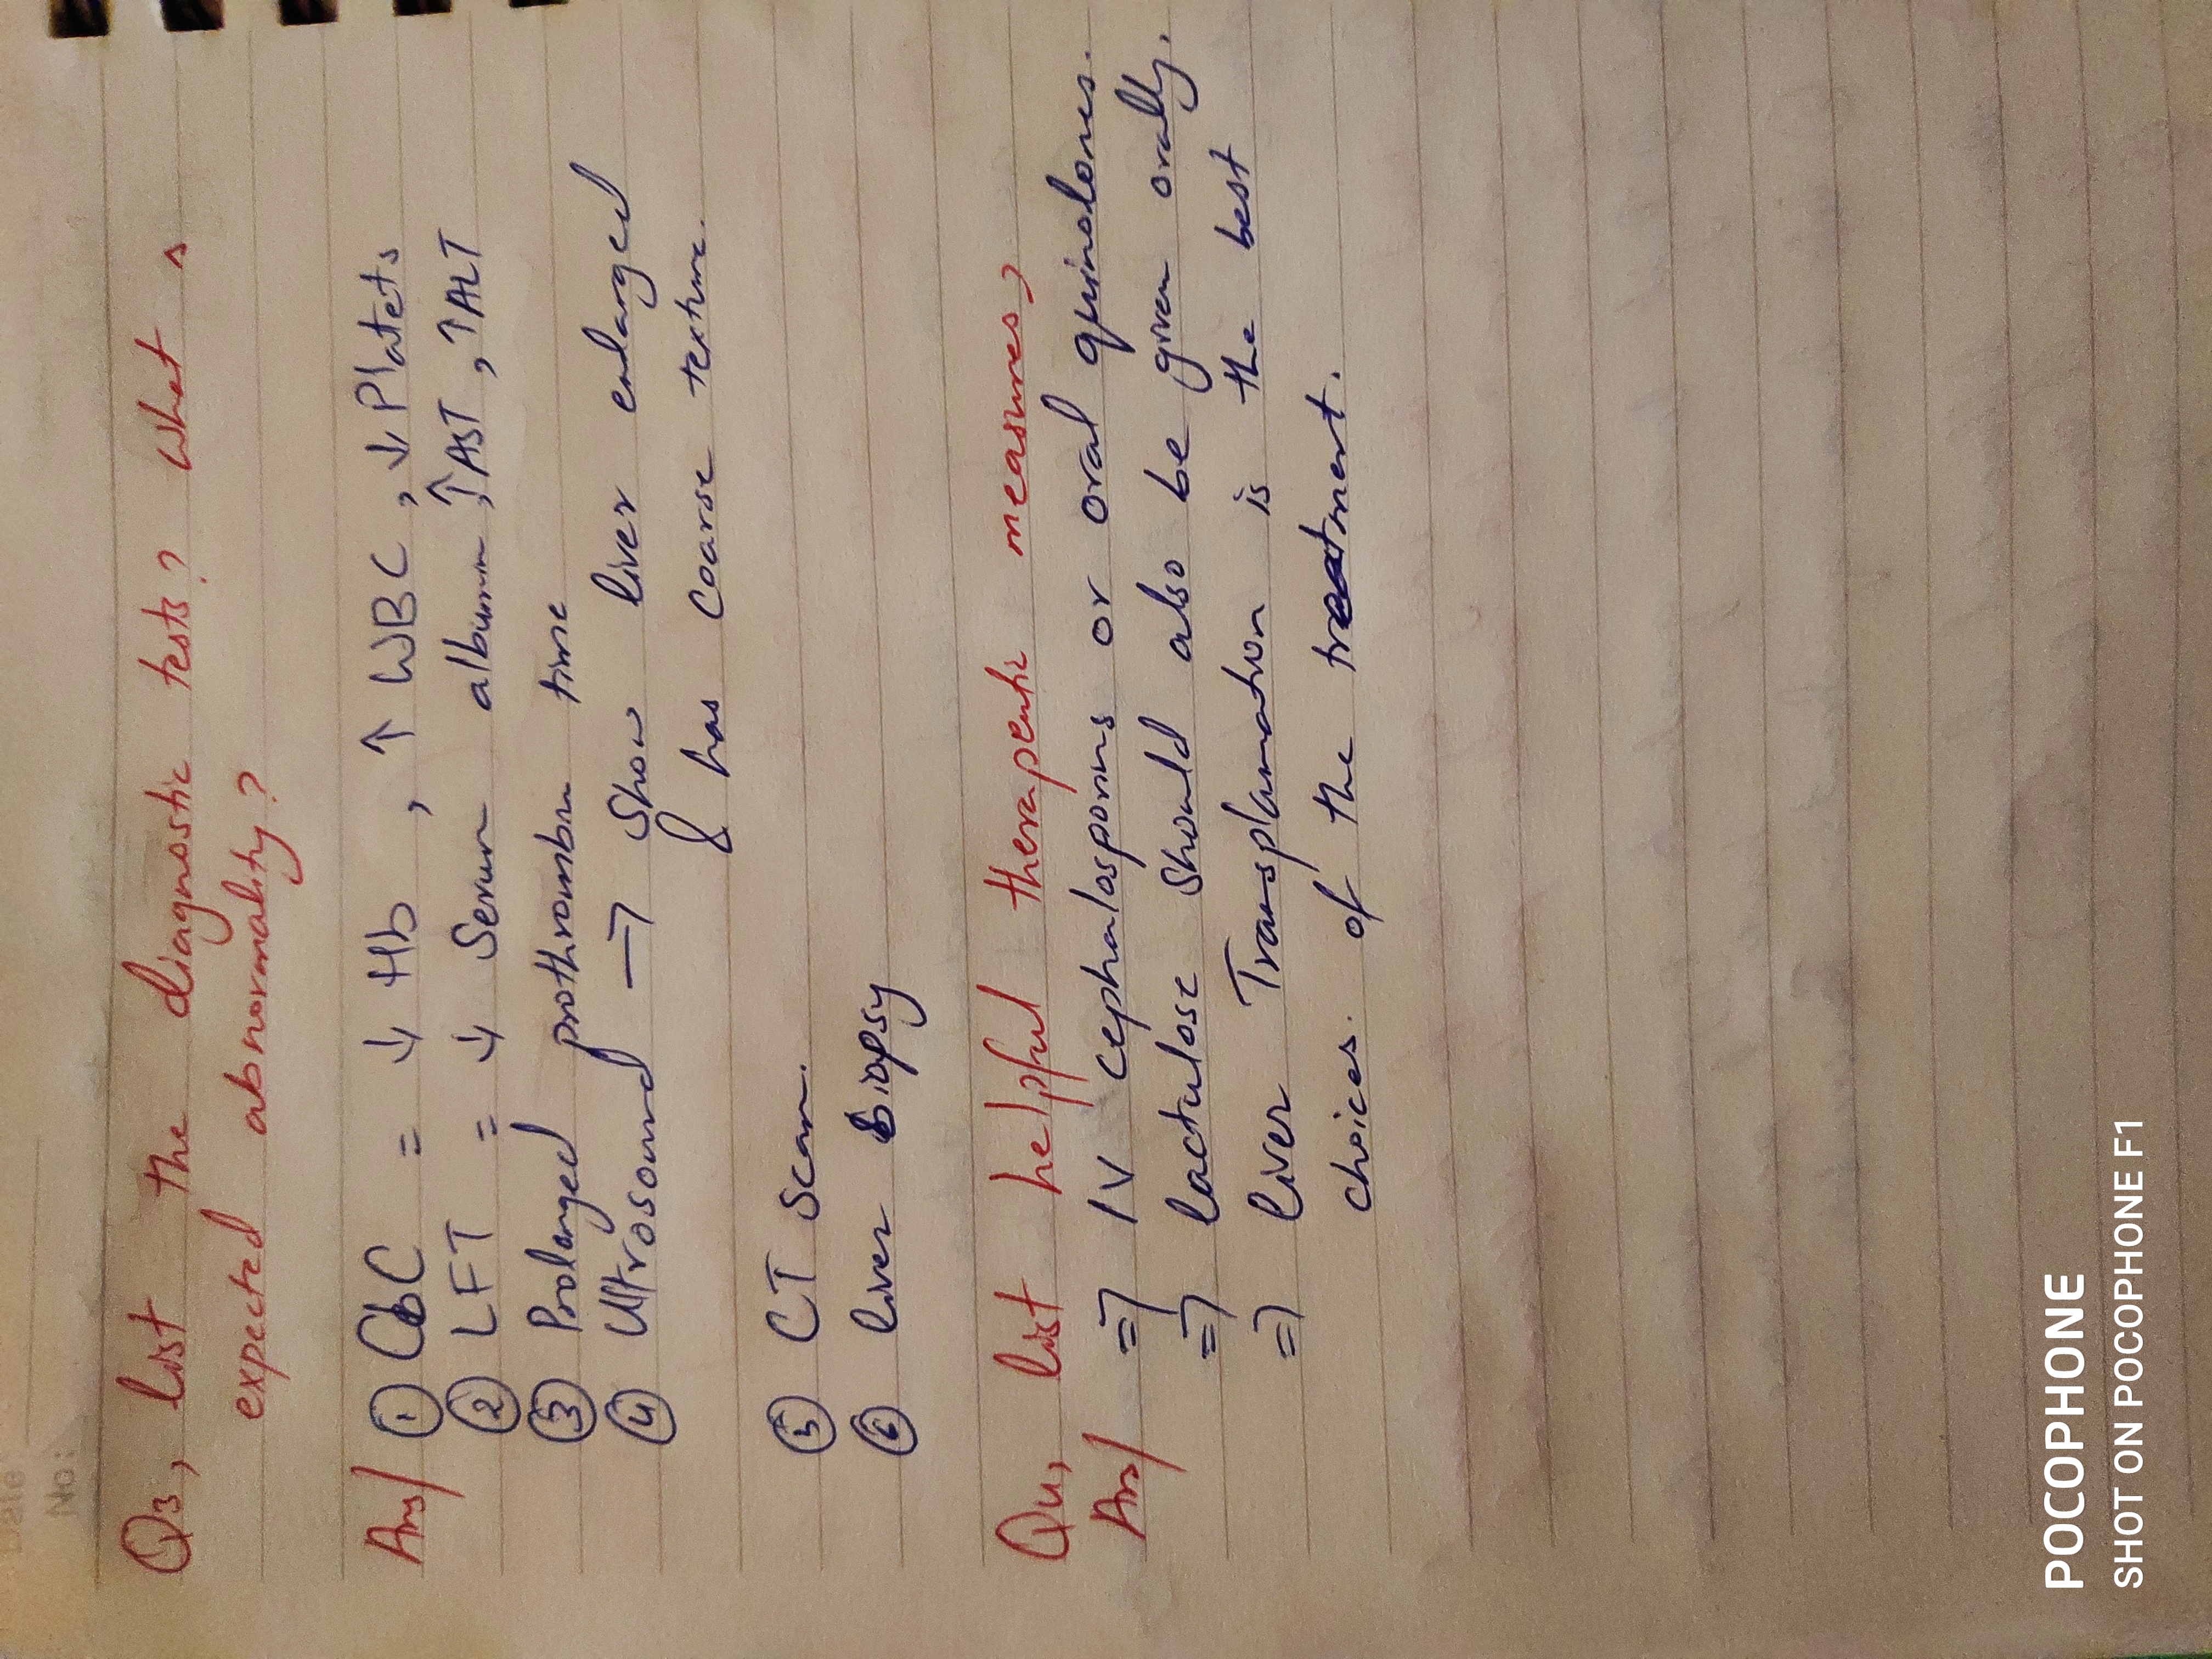 Date
No:
Q3, list the diagnostic tests? What s
expected abnormality?
Ans/ ① CbC = ↓ Hb , ↑ WBC , ↓ Platets
② LFT = ↓ Serum albumin, ↑AST, ↑ALT
③ Prolanged prothrombin time
④ Ultrosound → Show liver enlarged
& has coarse texture.
⑤ CT Scan.
⑥ liver biopsy
Q4, list helpful therapeutic measures?
Ans/ => IV cephalosporins or oral quinolones.
=> lactulose should also be given orally.
=> liver Transplamation is the best
choices. of the treatment.
POCOPHONE
SHOT ON POCOPHONE F1